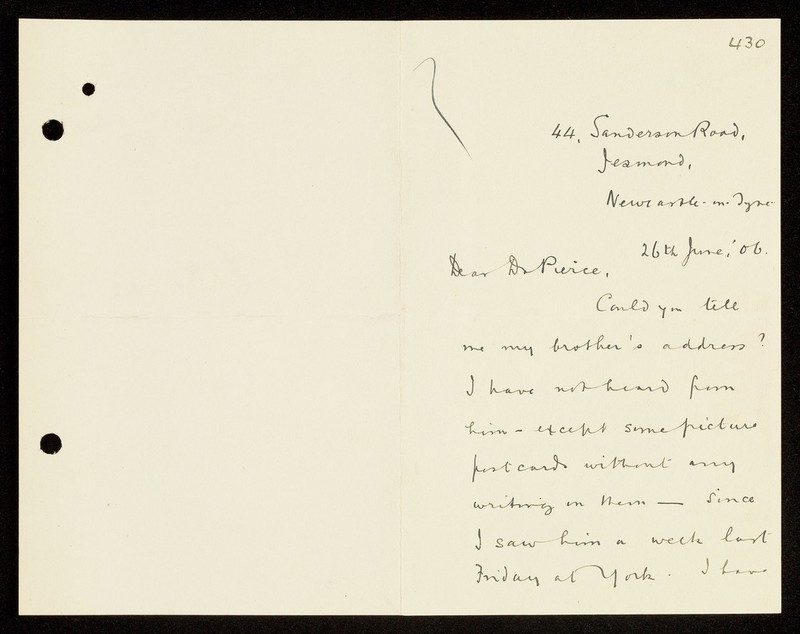 430
44, Sanderson Road,
Jesmond,
Newcastle-on-Tyne.
26th June, '06.
Dear Dr Pierce,
Could you tell
me my brother's address?
I have not heard from
him - except some picture
postcards without any
writing on them — since
I saw him a week last
Friday at York. I have